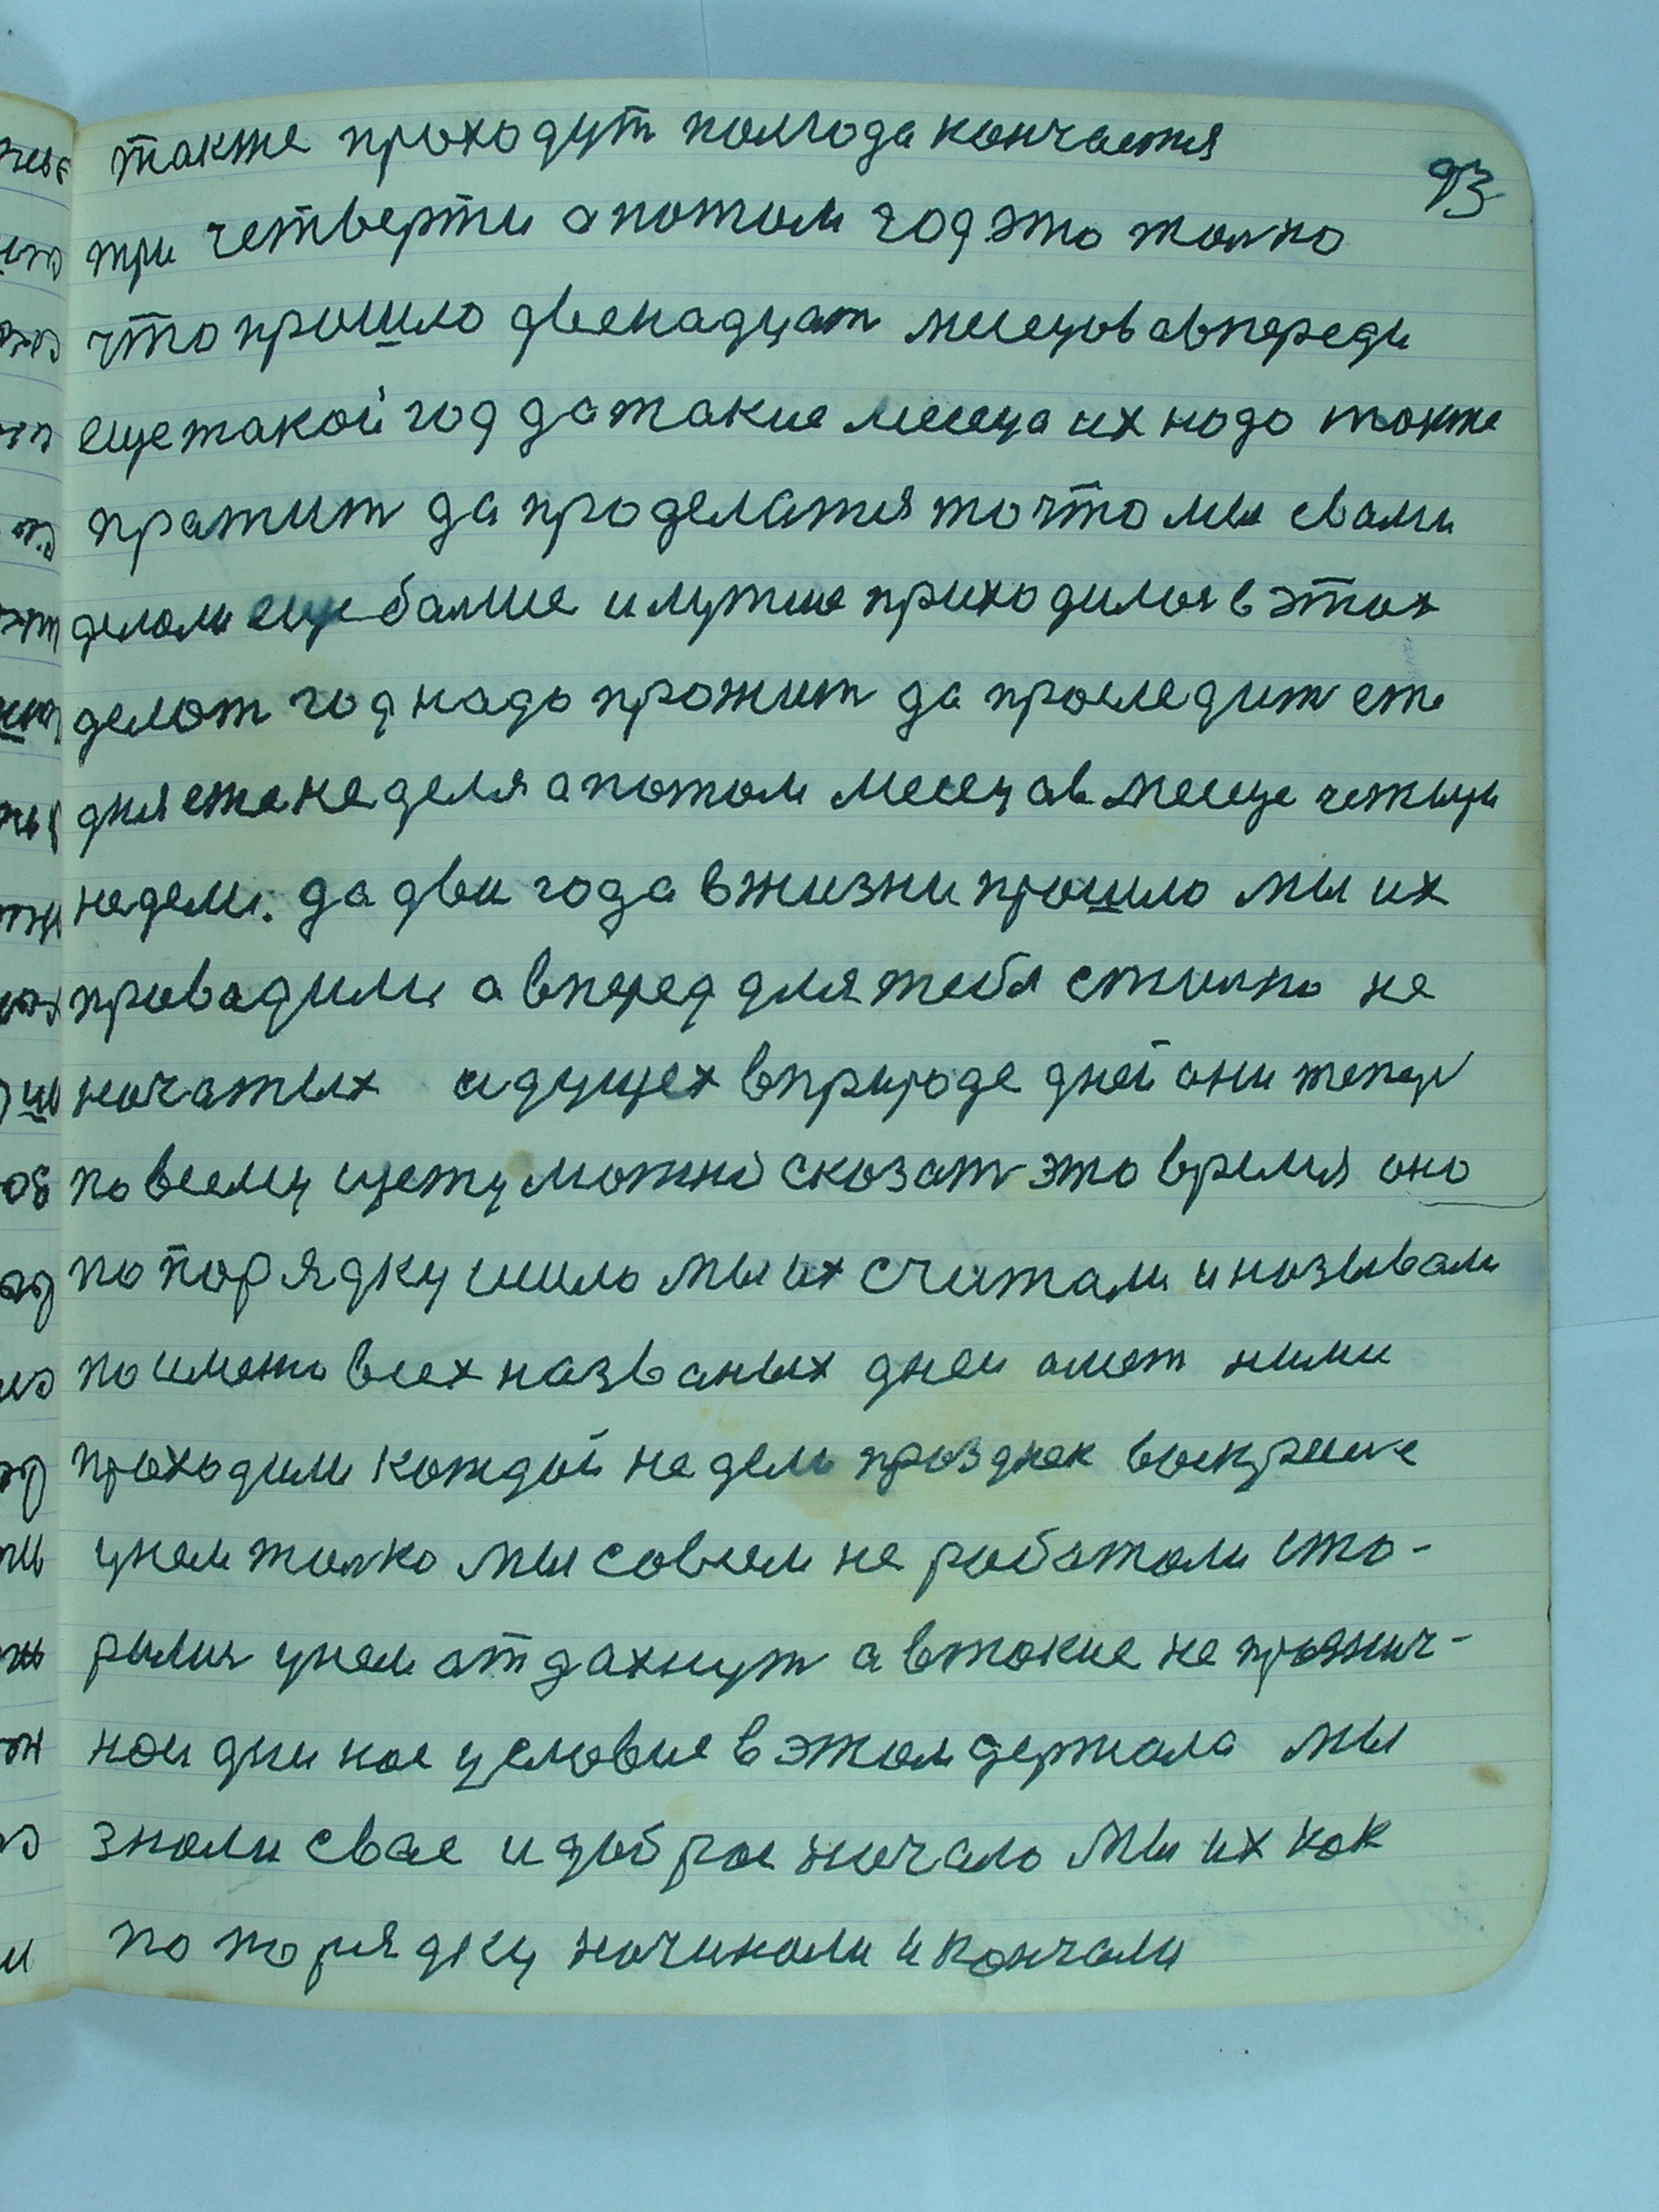 также проходут полгода кончается
93
три четверти а потом год это толко
что прошло двенадцат месецов авпереди
еще такой год да такие месеца их надо также
пражит да проделатся то что мы свами
делали еще балше и лутше приходилоя в этох
делат год надо прожит да проследит ета
дня ета неделя а потом месец ав месеце четыри
недели. да два года в жизни прошло мы их
провадили а вперед для тебя столко не
начатых идущех вприроде дней они тепер
повсему щету можно сказат это время оно
по порядку шило мы их считали и называли
по имени всех названых дней амет ними
проходили каждой недели празднек воскрисие
унем толко мы совсем не работали ста-
ралис унем отдахнут а втокие не празнич-
нои дни нас условие в этом держала мы
знали свае и доброе начало мы их как
по порядку начинали и кончали